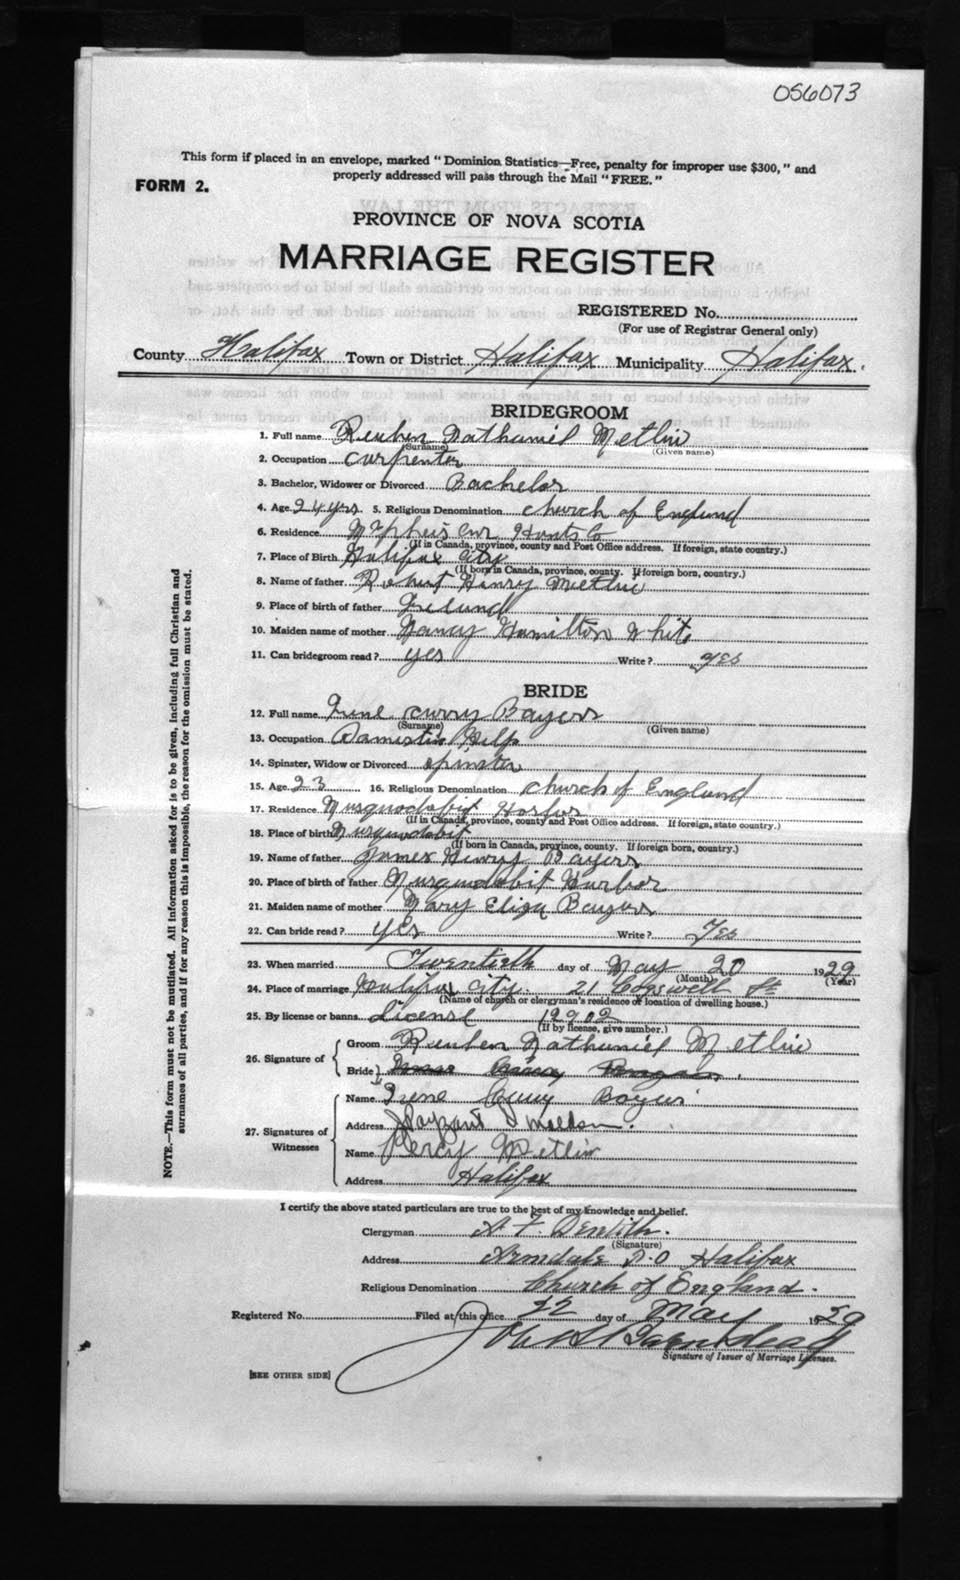 OS6073
This form if placed in an envelope, marked "Dominion Statistics—Free, penalty for improper use $300," and
properly addressed will pass through the Mail "FREE."
FORM 2.
PROVINCE OF NOVA SCOTIA
MARRIAGE REGISTER
REGISTERED No.
(For use of Registrar General only)
County Halifax Town or District Halifax Municipality Halifax.
BRIDEGROOM
1. Full name Reuben Nathaniel Metlin
(Surname) (Given name)
2. Occupation carpenter
3. Bachelor, Widower or Divorced Bachelor
4. Age 24 yrs. 5. Religious Denomination church of England
6. Residence Hants Co
(If in Canada, province, county and Post Office address. If foreign, state country.)
7. Place of Birth Halifax City
(If born in Canada, province, county. If foreign born, country.)
8. Name of father Robert Henry Metlin
9. Place of birth of father Ireland
10. Maiden name of mother Nancy Hamilton White
11. Can bridegroom read? yes Write? yes
BRIDE
12. Full name Irene curry Bayers
(Surname) (Given name)
13. Occupation Damestic Help
14. Spinster, Widow or Divorced spinster
15. Age 23 16. Religious Denomination church of England
17. Residence Musquodobit Harbor
(If in Canada, province, county and Post Office address. If foreign, state country.)
18. Place of birth Musquodobit
(If born in Canada, province, county. If foreign born, country.)
19. Name of father James Henry Bayers
20. Place of birth of father Musquodobit Harbor
21. Maiden name of mother Mary Eliza Bayers
22. Can bride read? yes Write? Yes
23. When married Twentieth day of May 20 1929
(Month) (Year)
24. Place of marriage Halifax City. 21 Cogswell St
(Name of church or clergyman's residence or location of dwelling house.)
25. By license or banns License 12902
(If by license, give number.)
26. Signature of
Groom Reuben Nathaniel Metlin
Bride
27. Signatures of Witnesses
Name Irene Curry Bayers
Address
Name Percy Metlin
Address Halifax
I certify the above stated particulars are true to the best of my knowledge and belief.
Clergyman A. F. Dentith.
(Signature)
Address Armdale P.O Halifax
Religious Denomination Church of England.
Registered No. Filed at this office 22 day of May 1929
Signature of Issuer of Marriage Licenses.
[SEE OTHER SIDE]
NOTE.—This form must not be mutilated. All information asked for is to be given, including full Christian and
surnames of all parties, and if for any reason this is impossible, the reason for the omission must be stated.